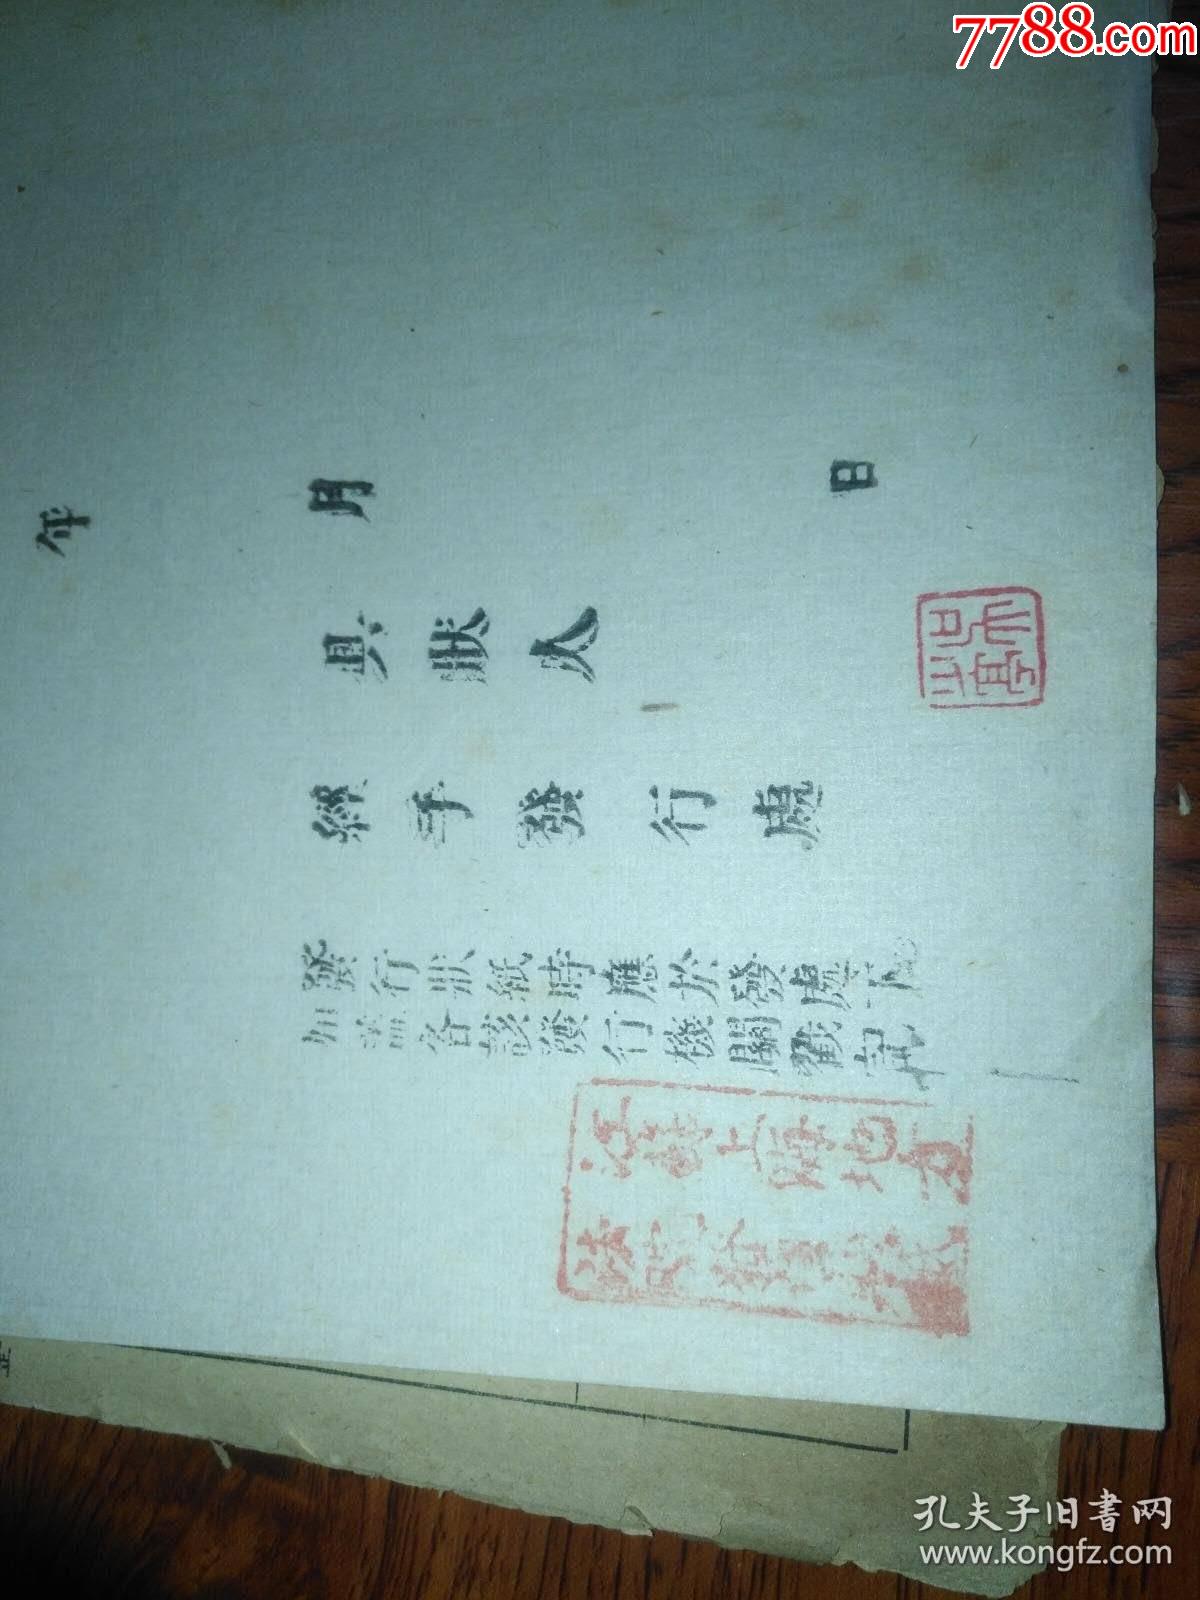 7788.com
年 月 日
具狀人
經手發行處
發行狀紙時應於發處下
加蓋各該發行機關戳記
江蘇上海地
法院
孔夫子旧书网
www.kongfz.com